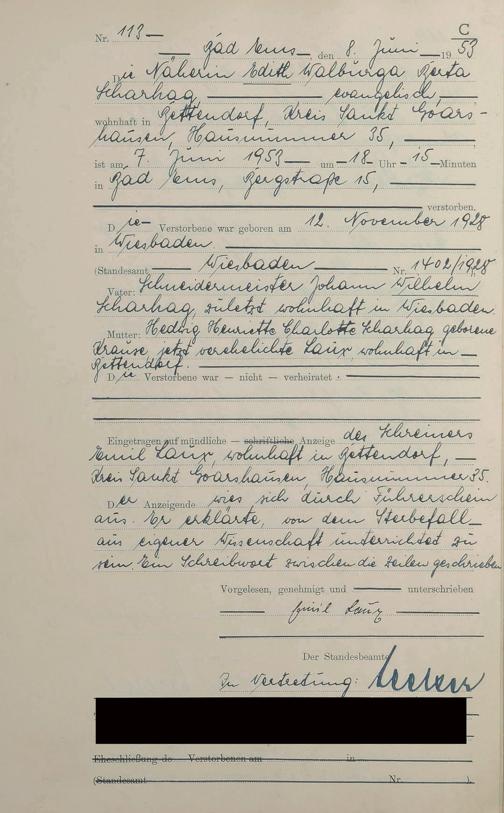 Nr. 113
C
Bad Ems, den 8. Juni 19 53
Die Näherin Edith Walburga Berta
Scharhag, evangelisch,
wohnhaft in Bettendorf, Kreis Sankt Goars-
hausen, Hausnummer 35,
ist am 7. Juni 1953 um 18 Uhr 15 Minuten
in Bad Ems, Bergstraße 15,
verstorben.
Die Verstorbene war geboren am 12. November 1928
in Wiesbaden.
(Standesamt Wiesbaden Nr. 1402/1928
Vater: Schneidermeister Johann Wilhelm
Scharhag, zuletzt wohnhaft in Wiesbaden.
Mutter: Hedwig Henriette Charlotte Scharhag geborene
Krause, jetzt verehelichte Laux wohnhaft in
Bettendorf.
Die Verstorbene war — nicht — verheiratet.
Eingetragen auf mündliche — schriftliche Anzeige des Schreiners
Emil Laux, wohnhaft in Bettendorf,
Kreis Sankt Goarshausen, Hausnummer 35.
Der Anzeigende wies sich durch Führerschein
aus. Er erklärte, von dem Sterbefall
aus eigener Wissenschaft unterrichtet zu
sein. Ein Schreibwort zwischen die Zeilen geschrieben
Vorgelesen, genehmigt und unterschrieben
Emil Laux
Der Standesbeamte
In Vertretung:
Eheschließung de Verstorbenen am in
(Standesamt Nr. ).